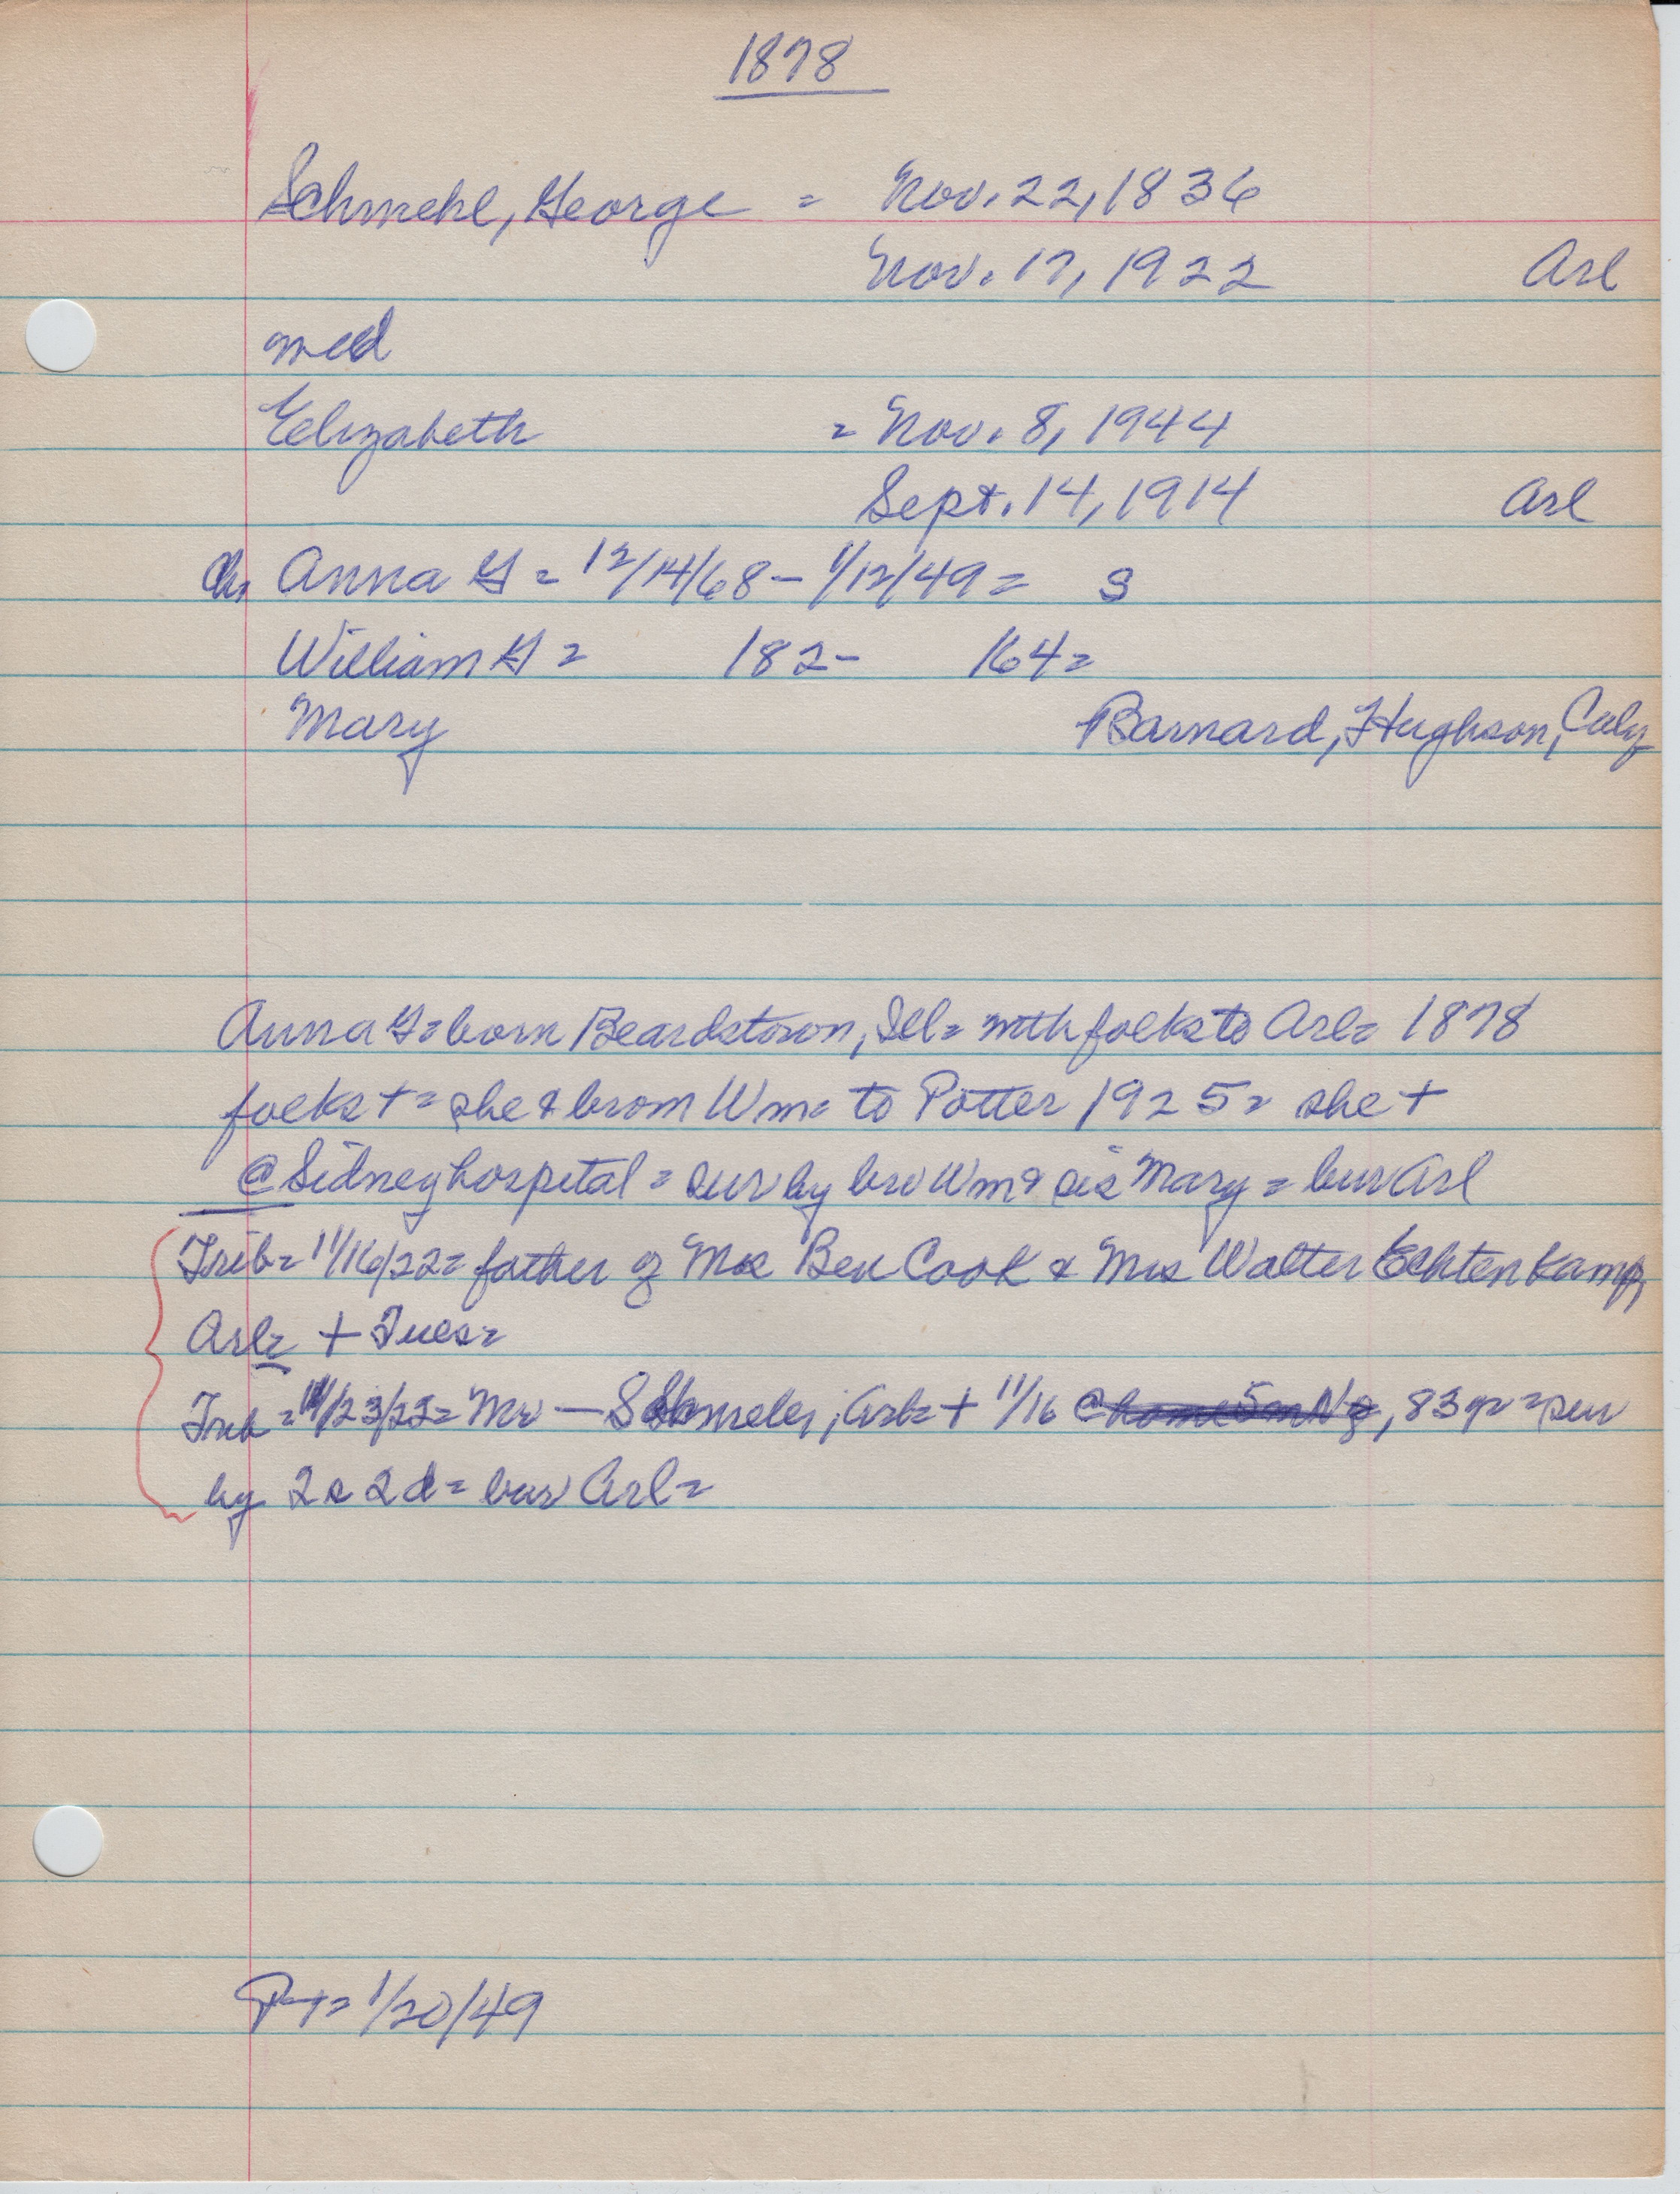 1878
Schmehl, George = Nov. 22, 1836
Nov. 17, 1922 Arl
med
Elizabeth = Nov. 8, 1944
Sept. 14, 1914 Arl
ch, Anna G = 12/14/68 - 1/12/49 = S
William G = 182- 164=
Mary Barnard, Hughson, Calif
Anna G = born Beardstown, Ill = with folks to Arl = 1878
folks + = she & brom Wm = to Potter 1925 = she +
@ Sidney hospital = sur by bro Wm & sis Mary = bur Arl
Trib = 11/16/22 = father of Mrs Ben Cook & Mrs Walter Echtenkamp,
Arl = + Tues =
Trib = 11/23/22 = Mr — Schmeler, Arl = + 11/16 @ home 5m N of, 83 yr = sur
by 2s 2d = bur Arl =
P-T = 1/20/49